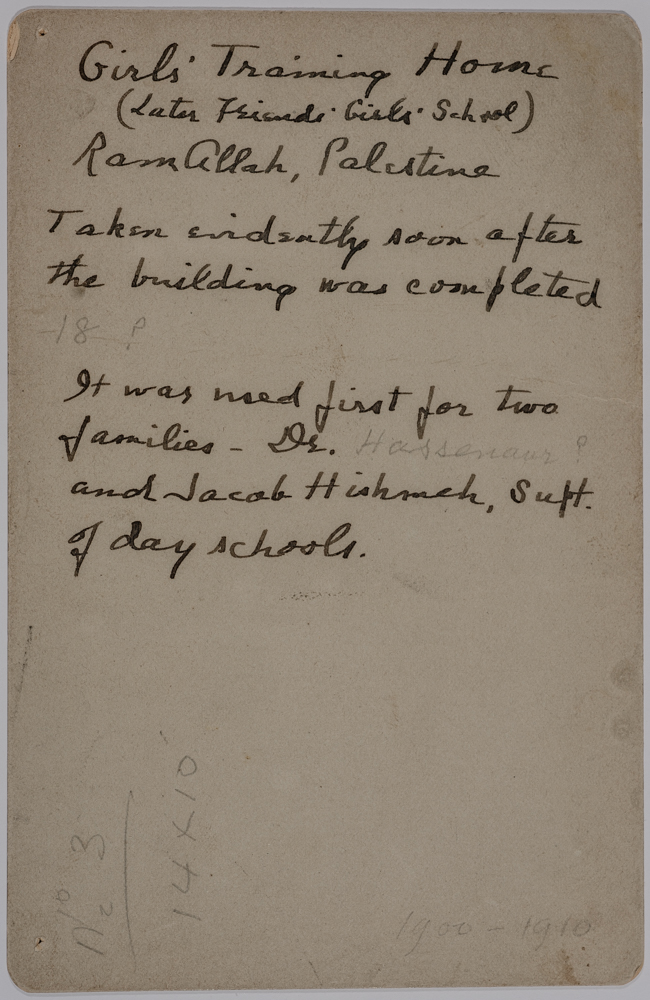 Girls' Training Home
(Later Friends' Girls' School)
Ram Allah, Palestine
Taken evidently soon after
the building was completed
-18 ?
It was used first for two
families - Dr. Hassenaur ?
and Jacob Hishmeh, Supt.
of day schools.
No 3
14 x 10
1900 - 1910